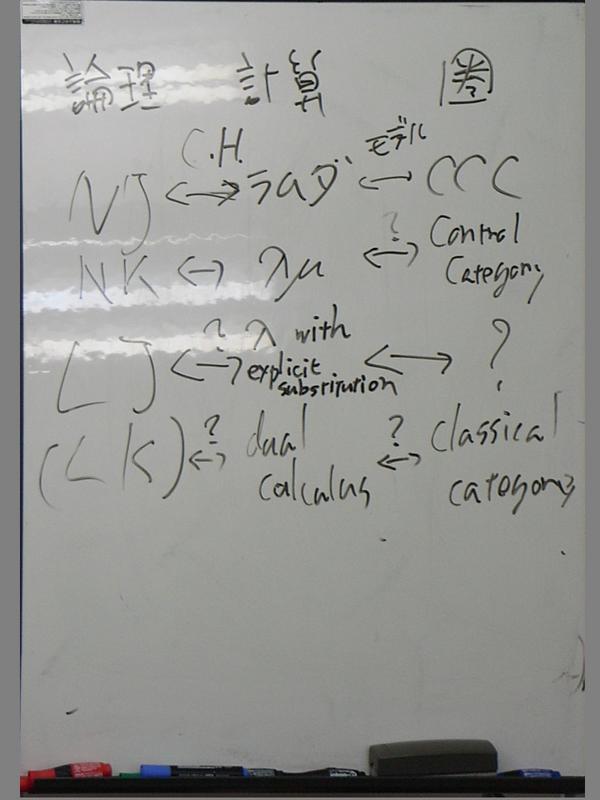 論理 計算 圏
C.H. モデル
NJ ↔ ラムダ ↔ CCC
NK ↔ λμ ↔ ? Control
Category
LJ ↔ ? λ with
explicit
substitution ↔ ?
(LK) ↔ ? dual ↔ ? classical
calculus category